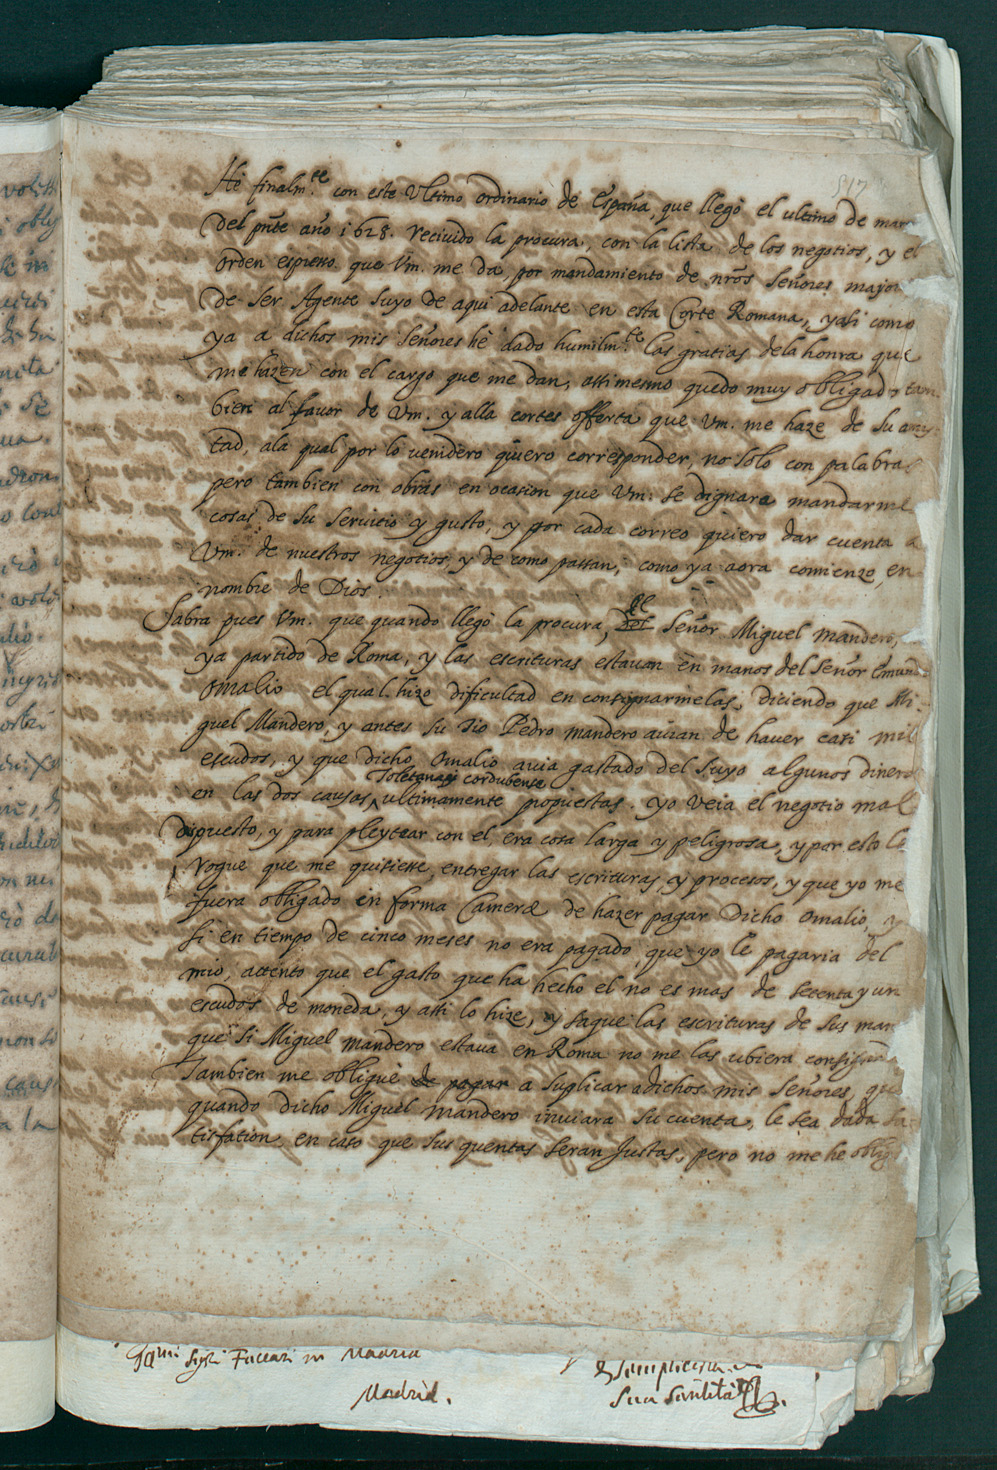 517
Hè finalm.te con este Ultimo ordinario de España, que llegò el ultimo de mar
Del pñte año 1628. recivido la procura, con la lista de los negotios, y el
orden espresso que Vm. me da, por mandamiento de nrõs Señores major
de ser Agente suyo de aqui adelante en esta Corte Romana, y asi como
ya a dichos mis Señores hè dado humilm.te las gratias dela honra que
me hazen con el cargo que me dan, assimesmo quedo muy obligado tam
bien al favor de Vm. y alla cortes offerta que Vm. me haze de su amis
tad, ala qual por lo venidero quiero corresponder, no solo con palabras
pero tambien con obras en ocasion que Vm. se dignara mandarme
cosas de su servicio y gusto, y por cada correo quiero dar cuenta a
Vm. de nuestros negotios, y de como passan, como ya aora comienzo, en
nombre de Dios.
Sabra pues Vm. que quando llegò la procura, el Señor Miguel mandero,
ya partido de Roma, y las escrituras estavan en manos del Señor Emundo
Omalio el qual hizo dificultad en consignarmelas, diciendo que Mi
guel Mandero, y antes su Tio Pedro mandero avian de haver casi mil
escudos, y que dicho Omalio avia gastado del suyo algunos dinero
Toletana y cordubense
en las dos causas ultimamente propuestas. yo veia el negotio mal
dispuesto, y para pleytear con el, era cosa larga y peligrosa, y por esto lo
rogue que me quisiesse entregar las escrituras, y procesos, y que yo me
fuera obligado in forma Cameræ de hazer pagar dicho Omalio, y
si en tiempo de cinco meses no era pagado, que yo le pagaria del
mio, attento que el gasto que ha hecho el no es mas de setenta y un
escudos de moneda, y assi lo hize, y saque las escrituras de sus man
que si Miguel mandero estava en Roma no me las ubiera consigna
Tambien me obliguè de pagar a suplicar a dichos mis Señores, que
quando dicho Miguel mandero inviara su cuenta, le sea dada sa
tisfation en caso que sus quentas seran justas, pero no me he oblig
sig.ri Fuccari in Madrid
Madrid.
Sua Santità